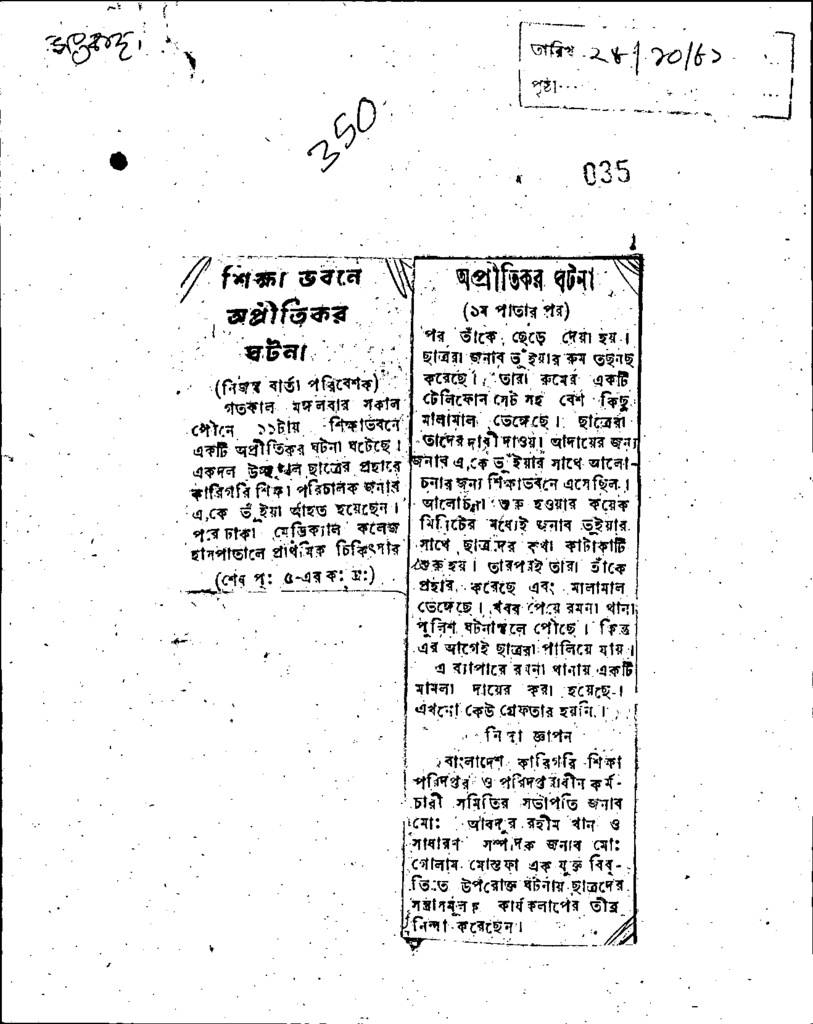 তারিখ ২৪/১০/৮১
পৃষ্ঠা...
350
035
শিক্ষা ভবনে
অপ্রীতিকর
ঘটনা
(নিজস্ব বার্তা পরিবেশক)
গতকাল মঙ্গলবার সকাল
পৌনে ১১টায় শিক্ষাভবনে
একটি অপ্রীতিকর ঘটনা ঘটেছে।
একদল উচ্ছৃংখল ছাত্রের প্রহারে
কারিগরি শিক্ষা পরিচালক জনাব
এ,কে ভূঁইয়া আহত হয়েছেন।
পরে ঢাকা মেডিক্যাল কলেজ
হাসপাতালে প্রাথমিক চিকিৎসার
(শেষ পৃ: ৫-এর ক: দ্র:)
অপ্রীতিকর ঘটনা
(১ম পাতার পর)
পর তাঁকে ছেড়ে দেয়া হয়।
ছাত্ররা জনাব ভূঁইয়ার রুম তছনছ
করেছে। তারা রুমের একটি
টেলিফোন সেট সহ বেশ কিছু
মালামাল ভেঙ্গেছে। ছাত্রেরা
তাদের দাবী দাওয়া আদায়ের জন্য
জনাব এ,কে ভূঁইয়ার সাথে আলো-
চনার জন্য শিক্ষাভবনে এসেছিল।
আলোচনা শুরু হওয়ার কয়েক
মিনিটের মধ্যেই জনাব ভূঁইয়ার
সাথে ছাত্রদের কথা কাটাকাটি
শুরু হয়। তারপরই তারা তাঁকে
প্রহার করেছে এবং মালামাল
ভেঙ্গেছে। খবর পেয়ে রমনা থানা
পুলিশ ঘটনাস্থলে পৌঁছে। কিন্তু
এর আগেই ছাত্ররা পালিয়ে যায়।
এ ব্যাপারে রমনা থানায় একটি
মামলা দায়ের করা হয়েছে।
এখনো কেউ গ্রেফতার হয়নি।
নিন্দা জ্ঞাপন
বাংলাদেশ কারিগরি শিক্ষা
পরিদপ্তর ও পরিদপ্তরাধীন কর্ম-
চারী সমিতির সভাপতি জনাব
মো: আবদুর রহীম খান ও
সাধারণ সম্পাদক জনাব মো:
গোলাম মোস্তফা এক যুক্ত বিবৃ-
তিতে উপরোক্ত ঘটনায় ছাত্রদের
সন্ত্রাসমূলক কার্যকলাপের তীব্র
নিন্দা করেছেন।